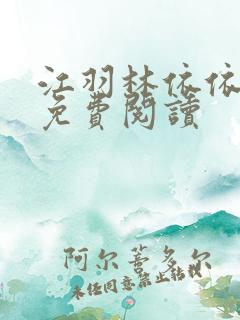 江羽林依依
免費閱讀
阿尔蒈多尔
未经同意禁止转载